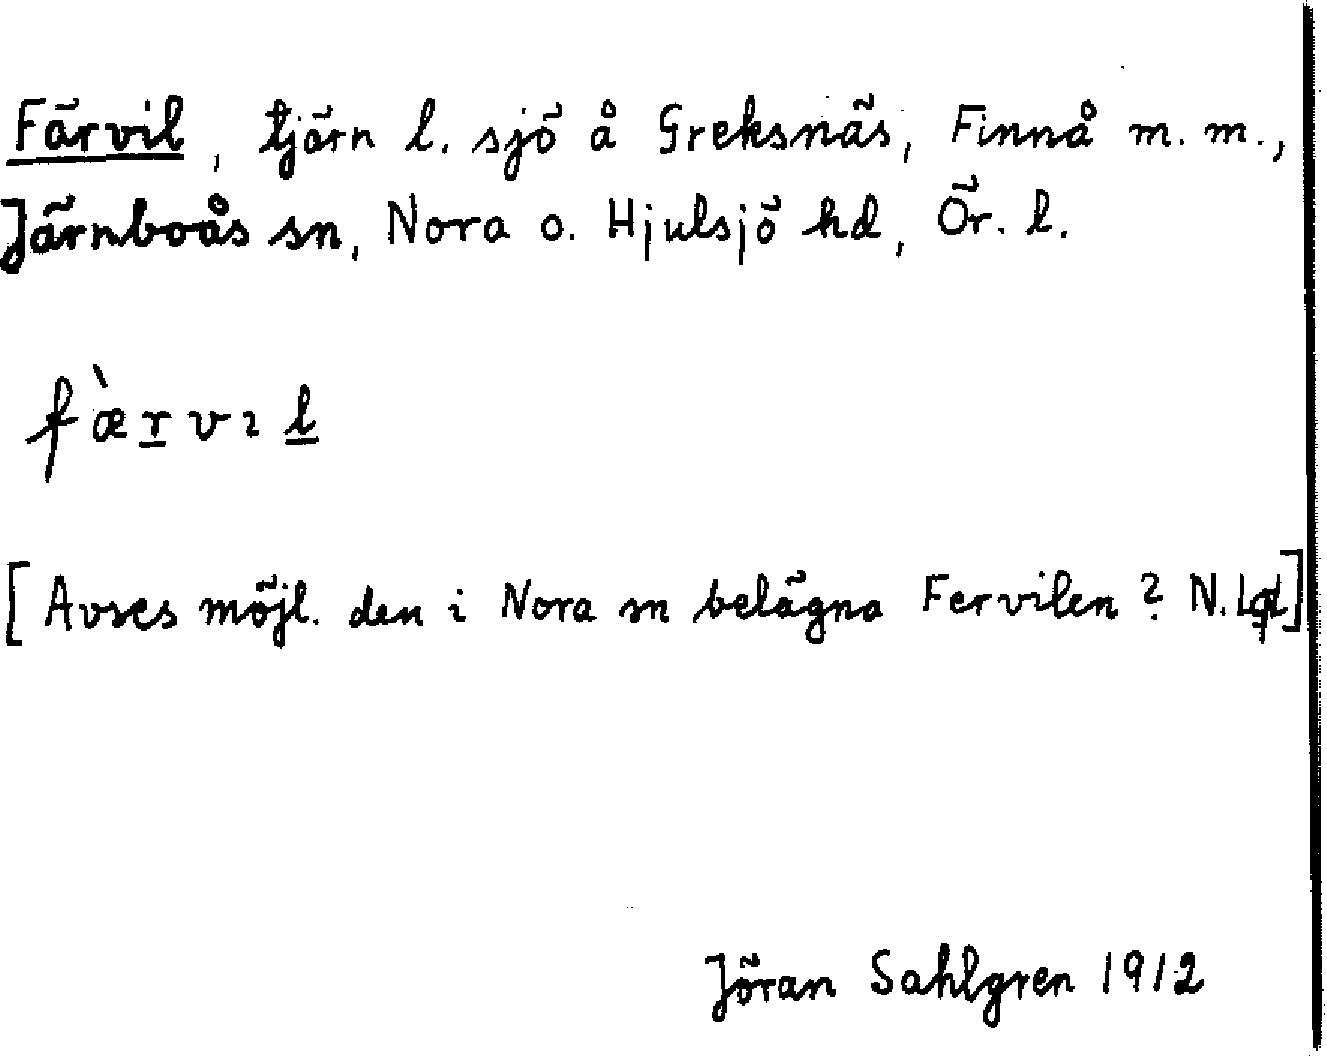 Färvil, tjärn l. sjö å Greksnäs, Finnå m. m.,
Järnboås sn, Nora o. Hjulsjö hd, Ör. l.
fæ̀rvɩl
[Avses möjl. den i Nora sn belägna Fervilen? N. Lgd]
Jöran Sahlgren 1912